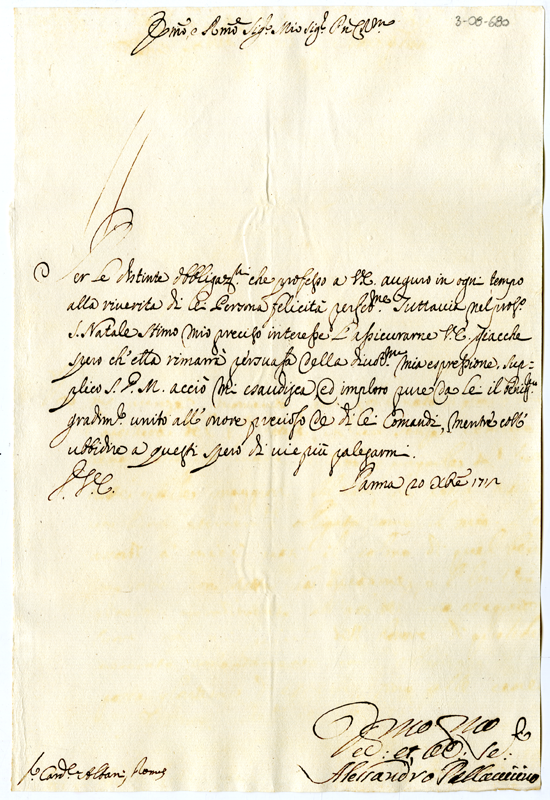 3-08-680
Emo, e Rmo Sig.r Mio Sig.r P.n Col.mo
Per le distinte obbligaz.ni che professo a V.E. auguro in ogni tempo
alla riverita di lei Persona felicità perfett.me Tuttavia nel pros.o
S. Natale stimo mio preciso interesse l'assicurarne V.E. giacche
spero ch'ella rimarrà persuasa della divot.ma mia espressione. Sup-
plico S. D. M. acciò mi esaudisca ed imploro pure da lei il
gradim.to unito all'onore precioso de di lei Comandi, mentre coll'
ubbidire a questi spero di vie più palesarmi.
Di V.E.
Parma 20 Xbre 1712
S.r Card.le Albani Roma
Umo Dmo
Dev: et Obb. Se.re
Alessandro Pallavicino